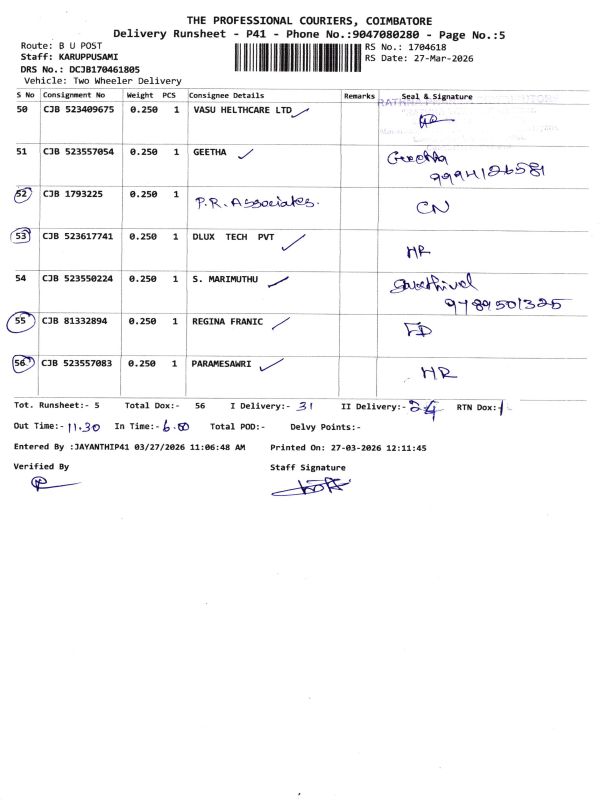 THE PROFESSIONAL COURIERS, COIMBATORE
Delivery Runsheet - P41 - Phone No.:9047080280 - Page No.:5
Route: B U POST
RS No.: 1704618
Staff: KARUPPUSAMI
RS Date: 27-Mar-2026
DRS No.: DCJB170461805
Vehicle: Two Wheeler Delivery
S No Consignment No Weight PCS Consignee Details Remarks Seal & Signature
50 CJB 523409675 0.250 1 VASU HELTHCARE LTD
51 CJB 523557054 0.250 1 GEETHA Geetha
9994126581
52 CJB 1793225 0.250 1 P.R. Associates. CN
53 CJB 523617741 0.250 1 DLUX TECH PVT HR
54 CJB 523550224 0.250 1 S. MARIMUTHU
9789501325
55 CJB 81332894 0.250 1 REGINA FRANIC
56 CJB 523557083 0.250 1 PARAMESAWRI HR
Tot. Runsheet:- 5 Total Dox:- 56 I Delivery:- 31 II Delivery:- 24 RTN Dox:- 1
Out Time:- 11.30 In Time:- 6.00 Total POD:- Delvy Points:-
Entered By :JAYANTHIP41 03/27/2026 11:06:48 AM Printed On: 27-03-2026 12:11:45
Verified By Staff Signature